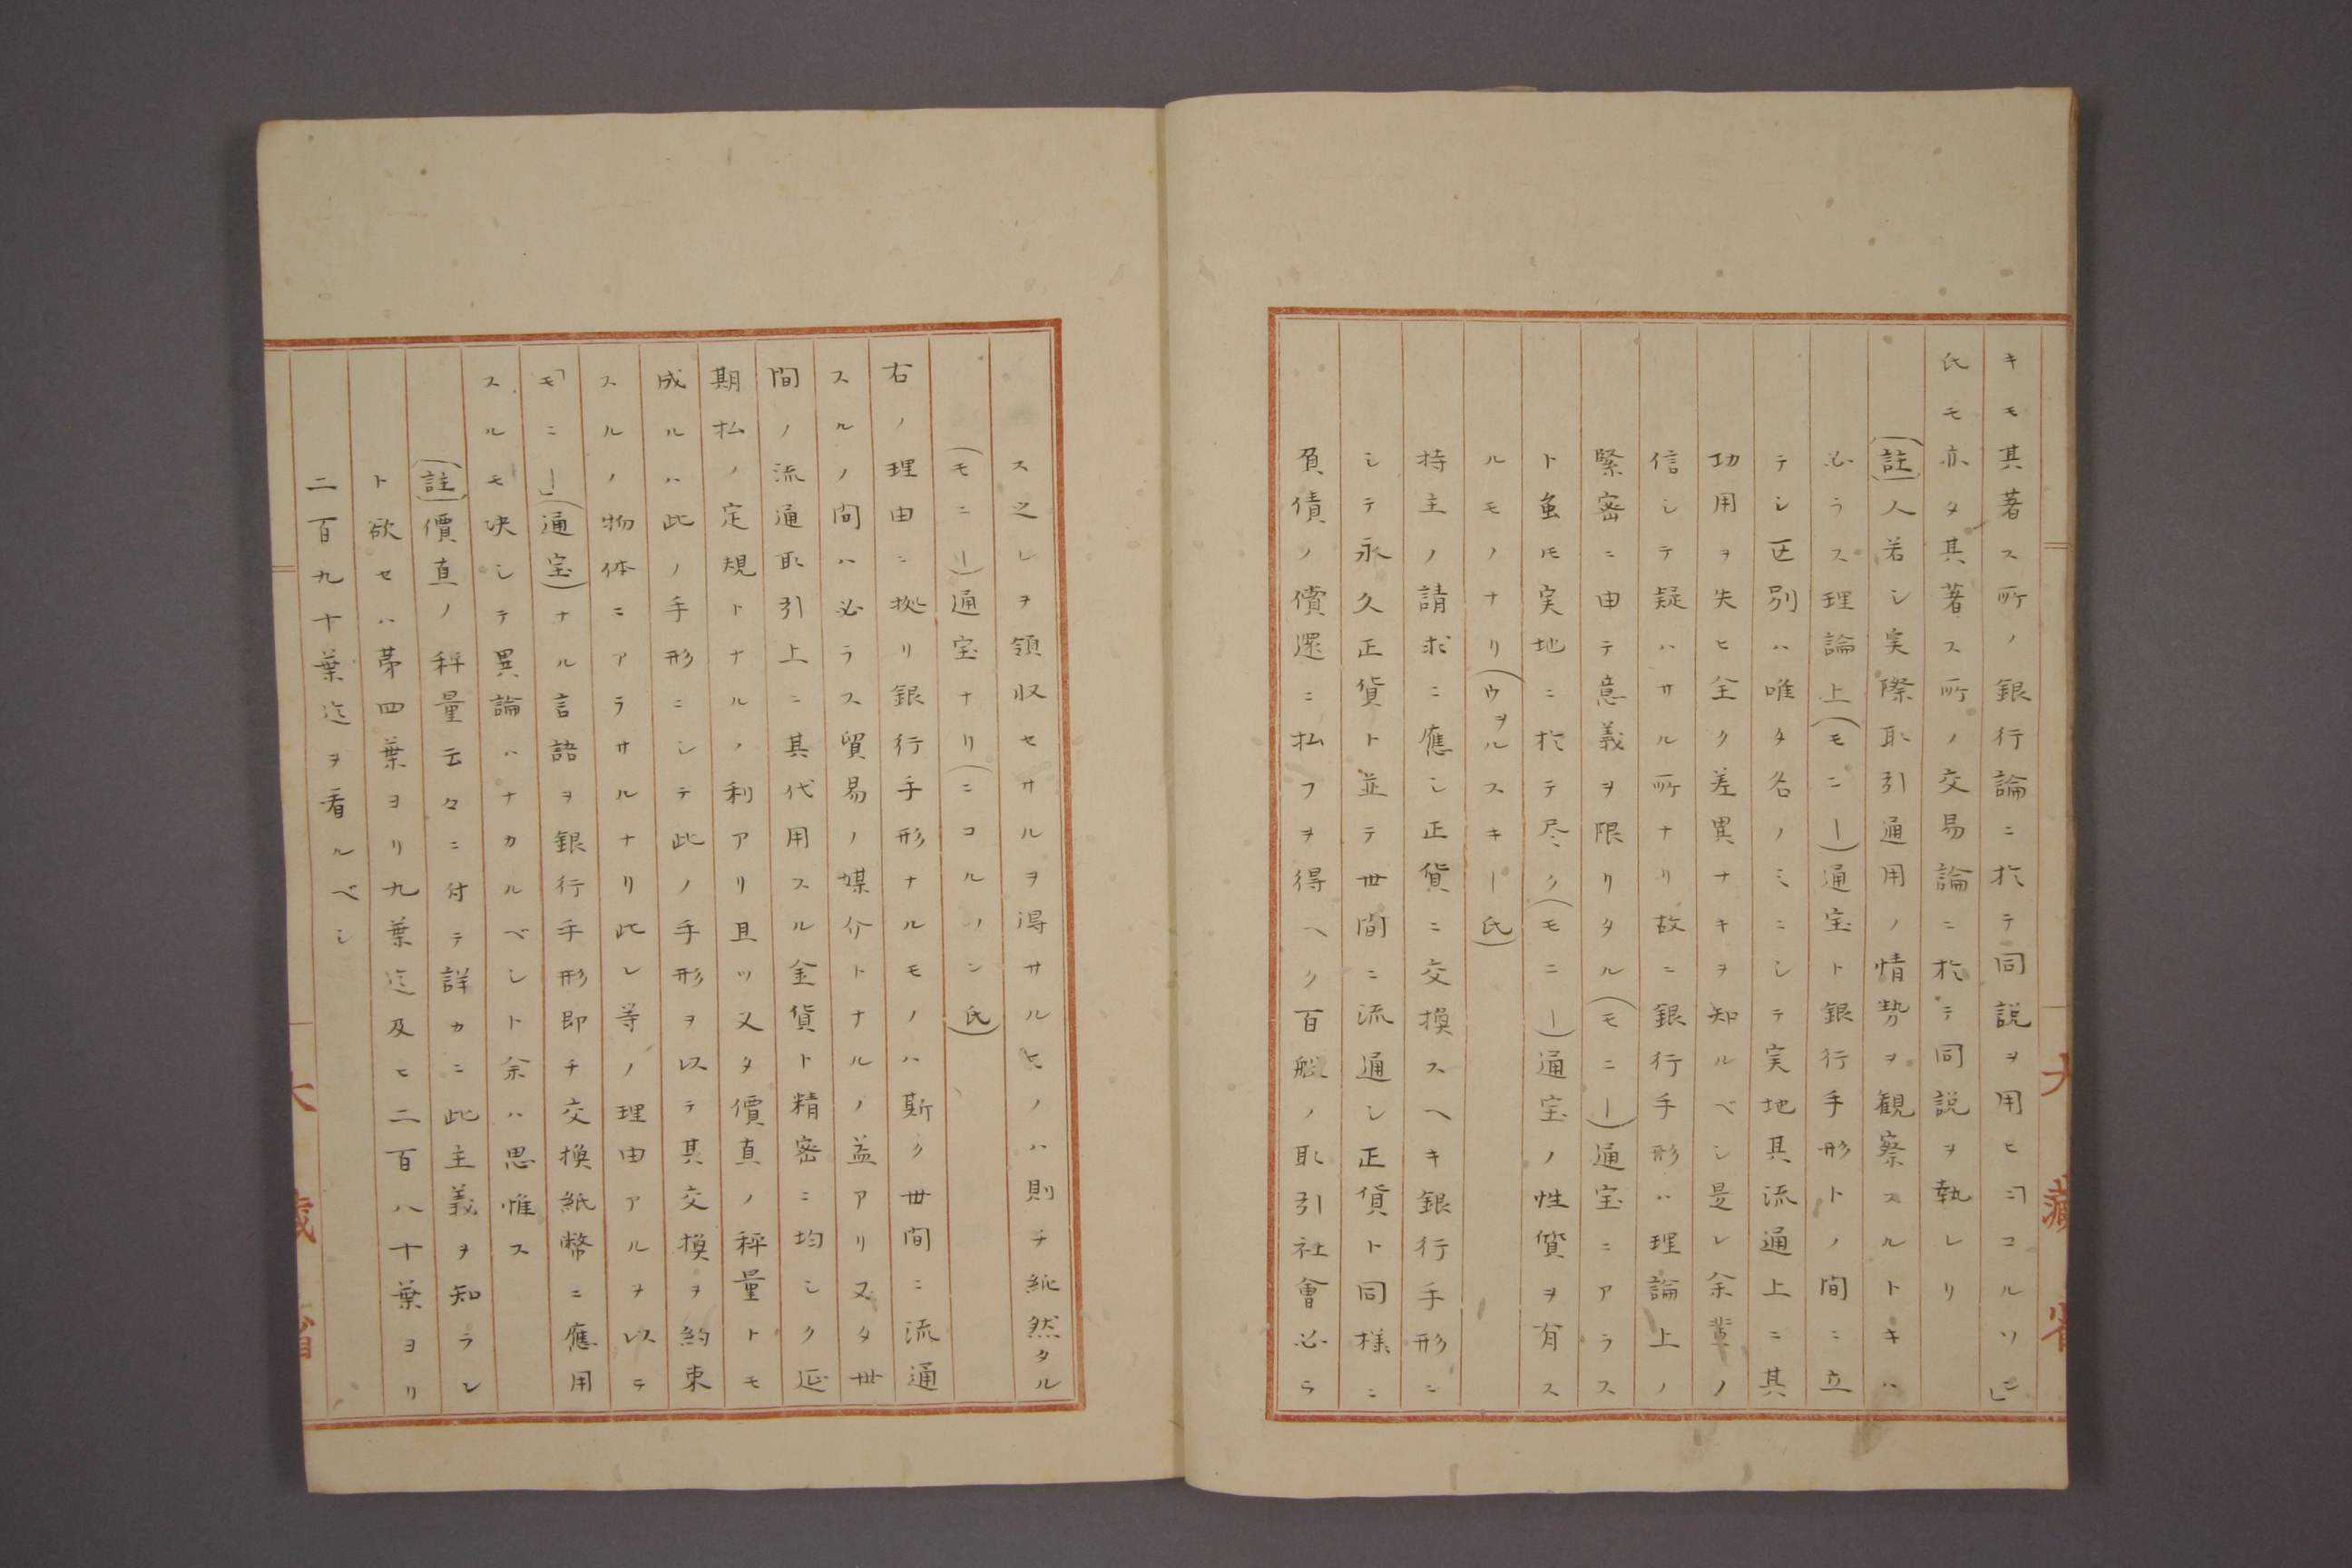 キモ其著ス所ノ銀行論ニ於テ同説ヲ用ヒ「ニコルソン」
氏モ亦タ其著ス所ノ交易論ニ於テ同説ヲ執レリ
(註)人若シ実際取引通用ノ情勢ヲ観察スルトキハ
必ラス理論上(モニー)通宝ト銀行手形トノ間ニ立
テシ区別ハ唯タ名ノミニシテ実地其流通上ニ其
功用ヲ失ヒ全ク差異ナキヲ知ルベシ是レ余輩ノ
信シテ疑ハサル所ナリ故ニ銀行手形ハ理論上ノ
緊密ニ由テ意義ヲ限リタル(モニー)通宝ニアラス
ト虽モ実地ニ於テ尽ク(モニー)通宝ノ性質ヲ有ス
ルモノナリ(ウヲルスキー氏)
持主ノ請求ニ應シ正貨ニ交換スヘキ銀行手形ニ
シテ永久正貨ト並テ世間ニ流通シ正貨ト同様ニ
負債ノ償還ニ払フヲ得ヘク百般ノ取引社會必ラ
ス之レヲ領収セサルヲ得サルモノハ則チ純然タル
(モニー)通宝ナリ(ニコルソン氏)
右ノ理由ニ拠リ銀行手形ナルモノハ斯ク世間ニ流通
スルノ間ハ必ラス貿易ノ媒介トナルノ益アリ又タ世
間ノ流通取引上ニ其代用スル金貨ト精密ニ均シク延
期払ノ定規トナルノ利アリ且ツ又タ價直ノ秤量トモ
成ルハ此ノ手形ニシテ此ノ手形ヲ以テ其交換ヲ約束
スルノ物体ニアラサルナリ此レ等ノ理由アルヲ以テ
「モニー」(通宝)ナル言語ヲ銀行手形即チ交換紙幣ニ應用
スルモ决シテ異論ハナカルベシト余ハ思惟ス
(註)價直ノ秤量云々ニ付テ詳カニ此主義ヲ知ラン
ト欲セハ苐四葉ヨリ九葉迄及ヒ二百八十葉ヨリ
二百九十葉迄ヲ看ルベシ
大藏省